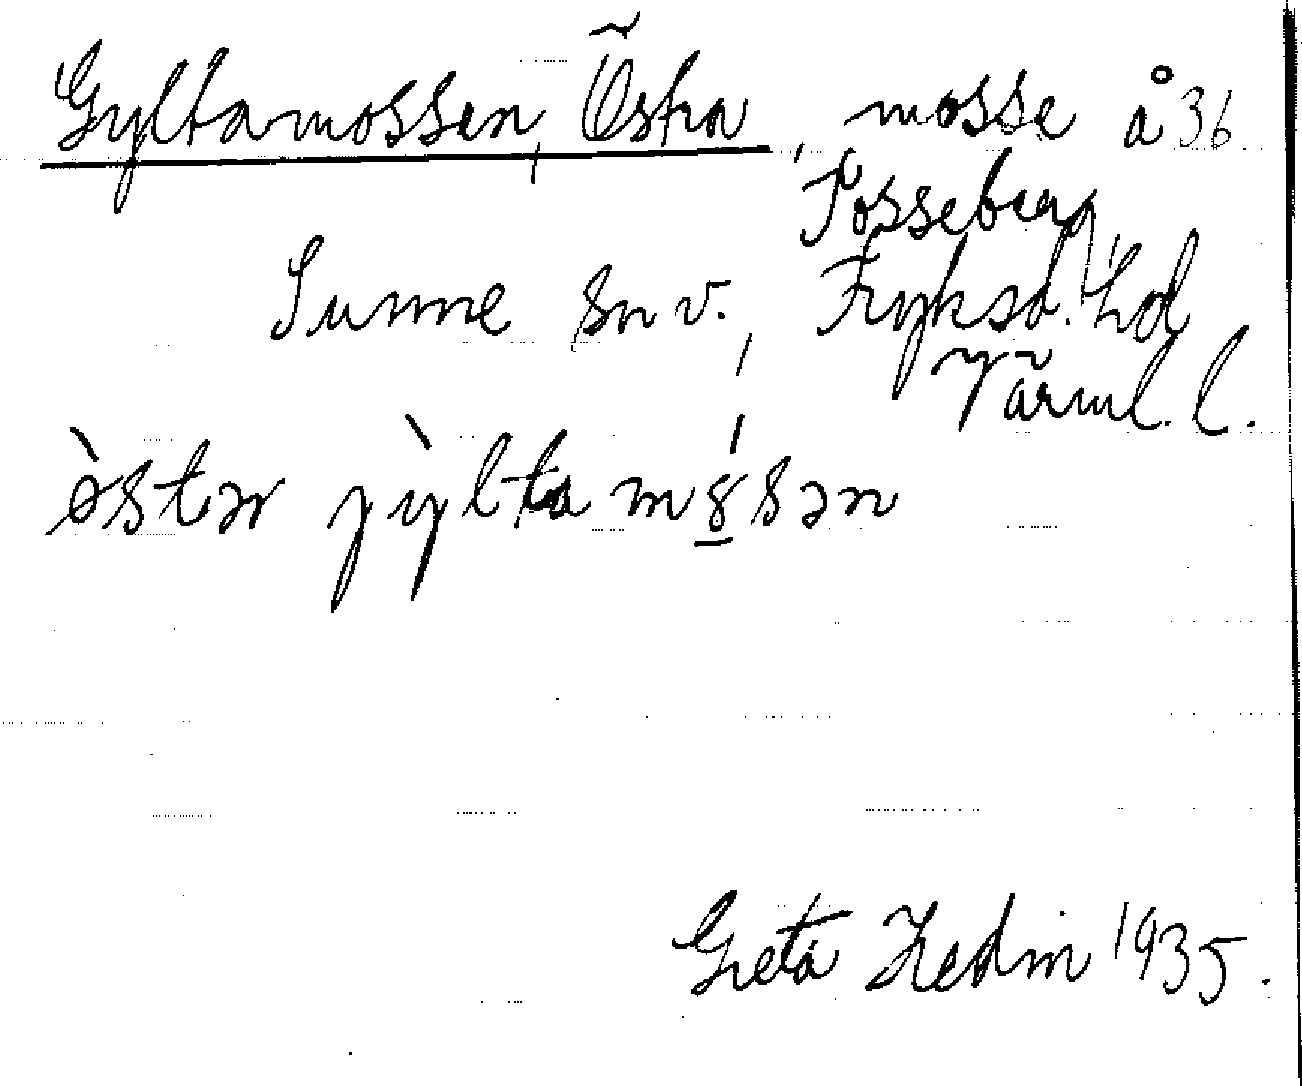 Gyltamossen, Östra, mosse å 36
Posseberg,
Sunne sn v., Fryksd. hd
Värml. l.
ø̀stər jỳlta mɷ́sən
Greta Hedin 1935.